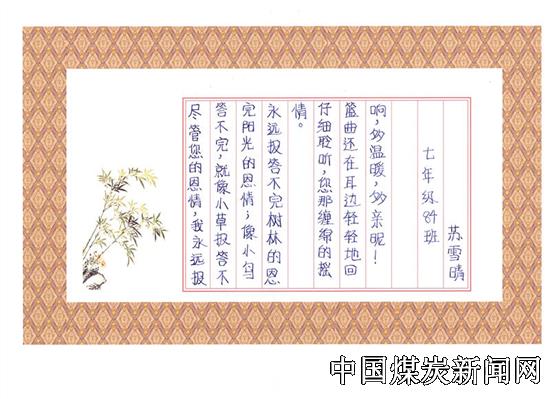 尽管您的恩情，我永远报
答不完，就像小草报答不
完阳光的恩情；像小鸟
永远报答不完树林的恩
情。
仔细聆听，您那缠绵的摇
篮曲还在耳边轻轻地回
响，妙温暖，妙亲昵！
七年级84班
苏雪晴
中国煤炭新闻网